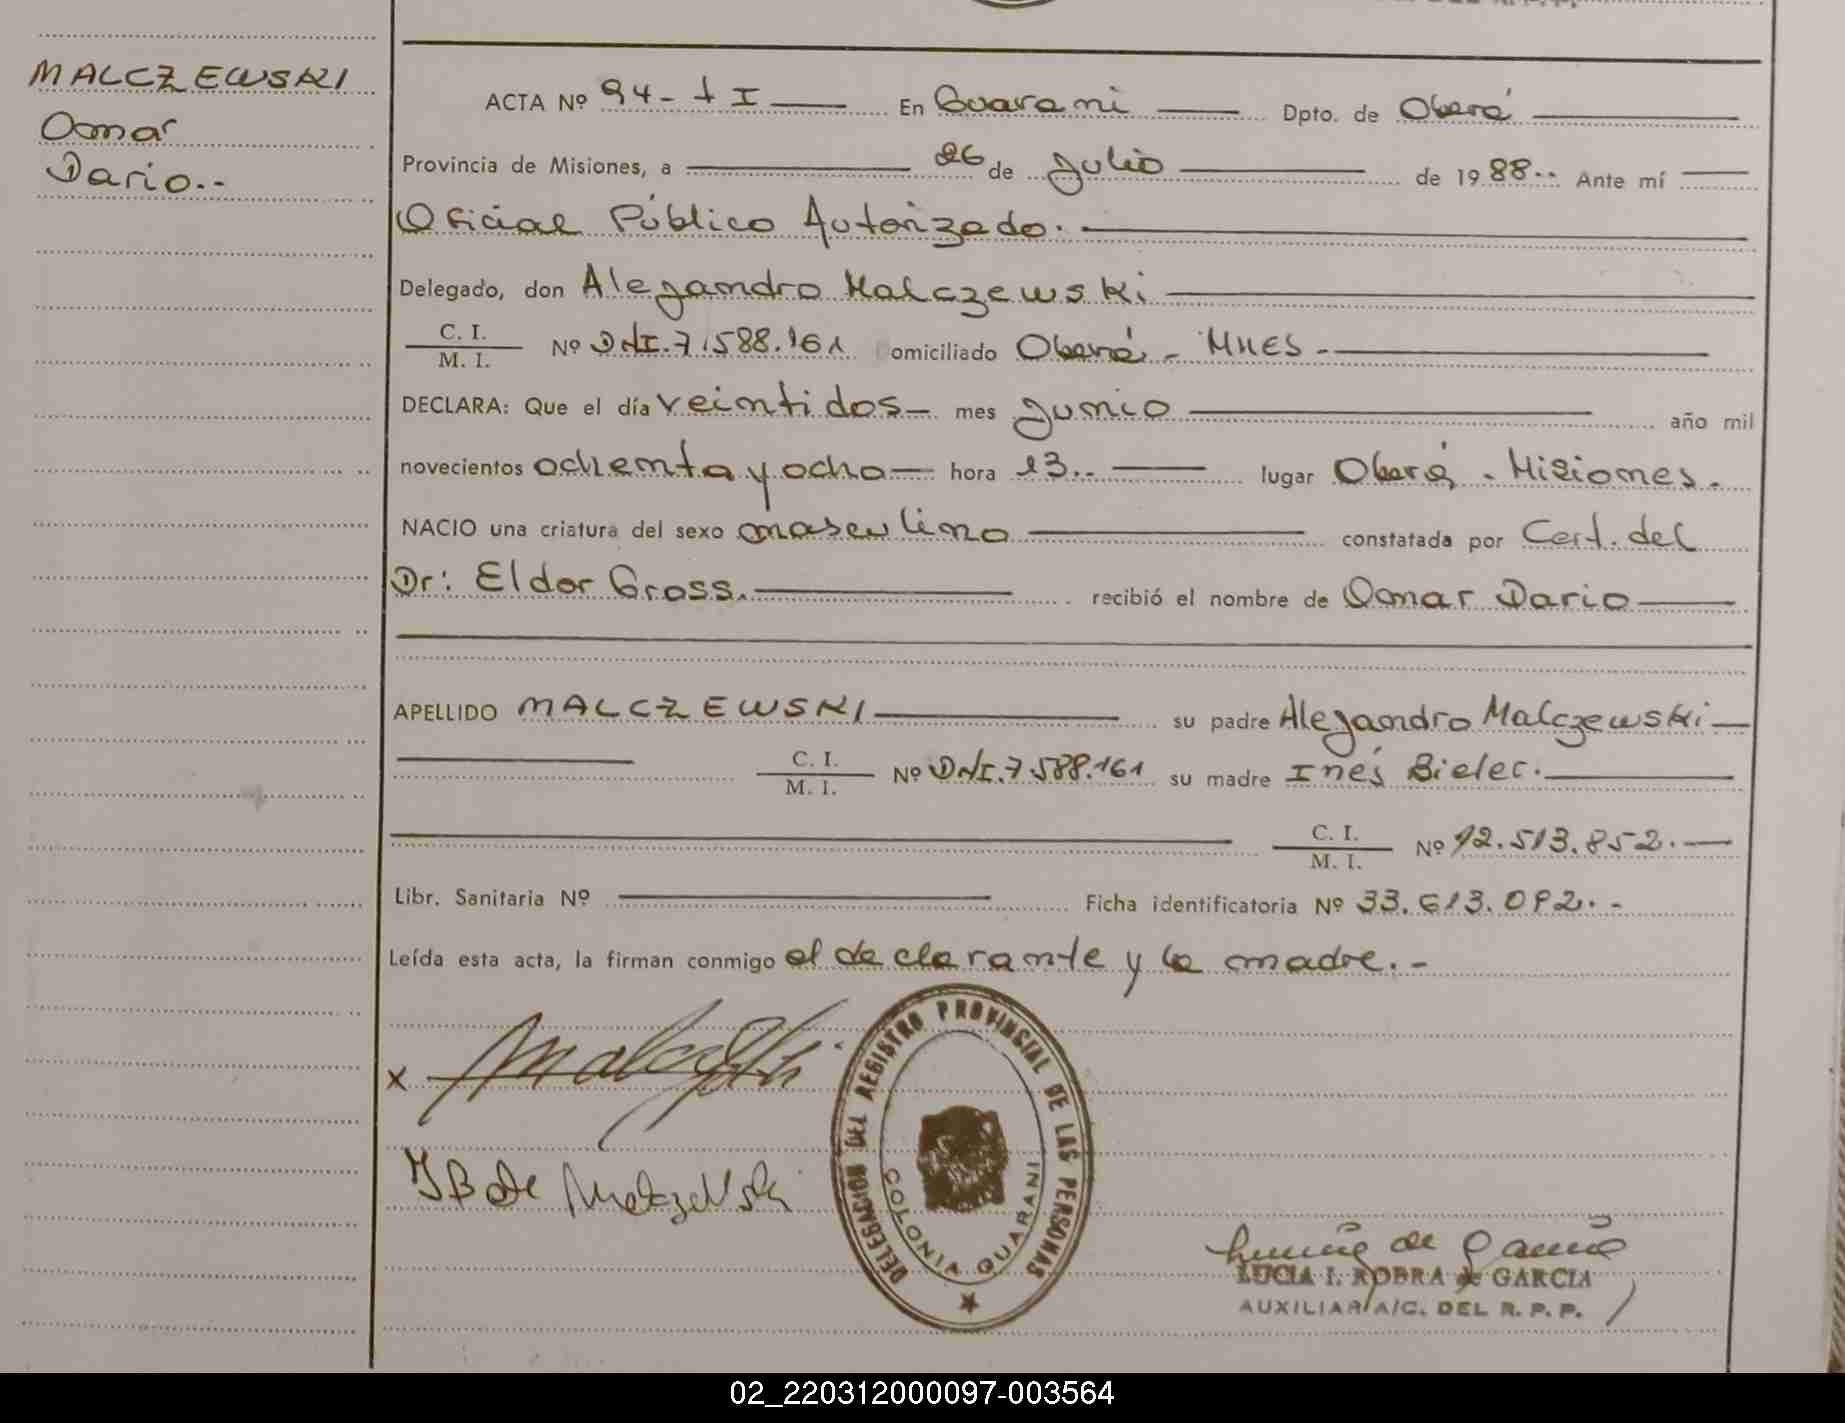 MALCZEWSKI
Omar
Dario.-
ACTA Nº 94- t I En Guarani Dpto. de Oberá
Provincia de Misiones, a 26 de Julio de 1988.. Ante mí
Oficial Público Autorizado.
Delegado, don Alejandro Malczewski
C. I.
M. I. Nº DNI.7.588.161 Domiciliado Oberá - MNES -
DECLARA: Que el día veintidos mes Junio año mil
novecientos ochenta y ocho hora 13.. lugar Oberá - Misiones.
NACIO una criatura del sexo masculino constatada por Cert. del
Dr: Eldor Gross. recibió el nombre de Omar Dario
APELLIDO MALCZEWSKI su padre Alejandro Malczewski
C. I.
M. I. Nº DNI.7.588.161 su madre Inés Bielec.
C. I.
M. I. Nº 12.513.852.
Libr. Sanitaria Nº Ficha identificatoria Nº 33.613.092.-
Leída esta acta, la firman conmigo el declarante y la madre.-
x
I B de Malczewski
DELEGACION DEL REGISTRO PROVINCIAL DE LAS PERSONAS
COLONIA GUARANI
LUCIA I. ROBRA de GARCIA
AUXILIAR A/C. DEL R. P. P.
02_220312000097-003564